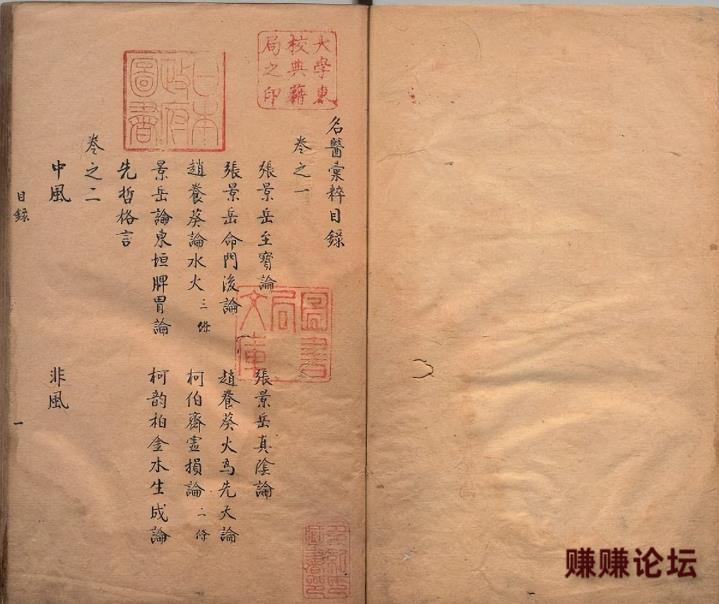 名醫彙粹目錄
卷之一
張景岳至寶論 張景岳真陰論
張景岳命門後論 趙養葵火為先天論
趙養葵論水火三條 柯伯齋虛損論二條
景岳論東垣脾胃論 柯韵柏金水生成論
先哲格言
卷之二
中風 非風
目錄 一
大學東
校典籍
局之印
日本
政府
圖書
圖書
局
文庫
赚赚论坛